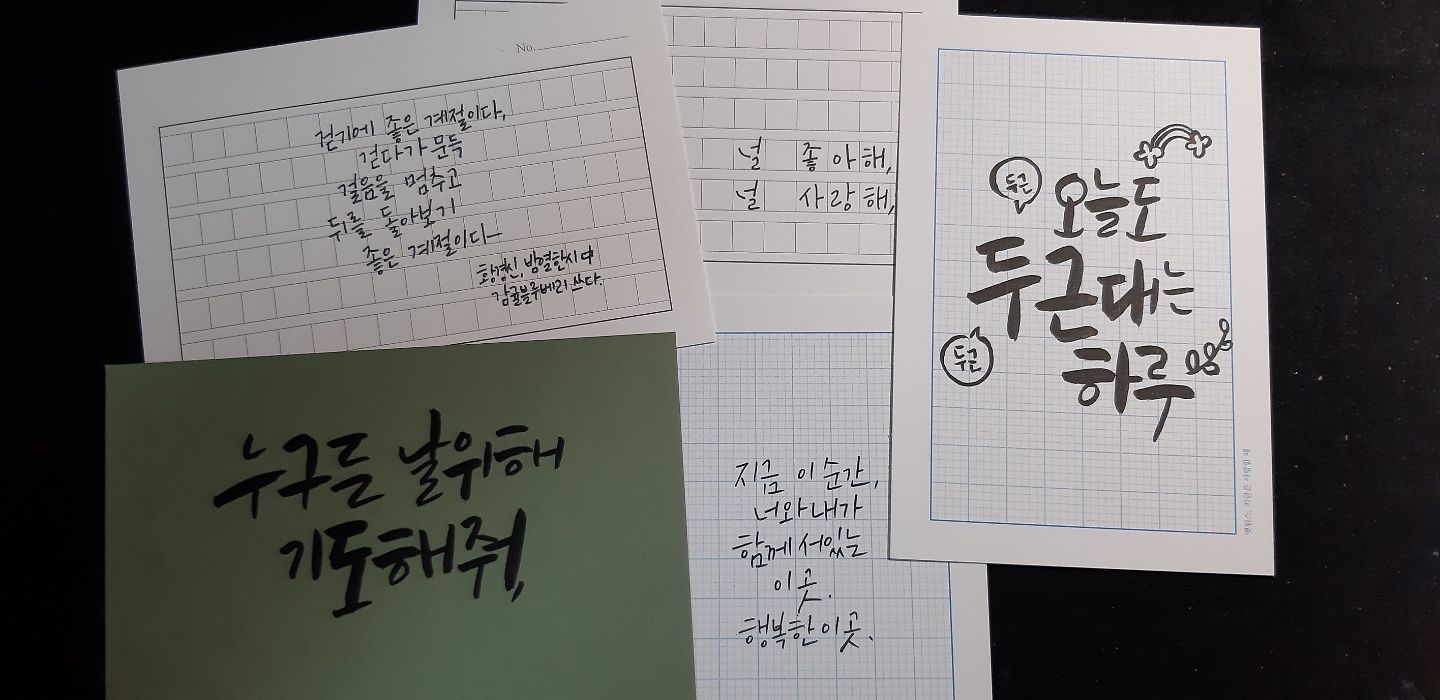 No.
걷기에 좋은 계절이다,
걷다가 문득
걸음을 멈추고
뒤를 돌아보기
좋은 계절이다-
황경신, 밤열한시 中
감귤블루베리 쓰다.
널 좋아해,
널 사랑해,
두근
오늘도
두근대는
두근
하루
누구든 날위해
기도해줘,
지금 이 순간,
너와 내가
함께 서있는
이 곳.
행복한 이 곳.
지금은 사랑할 때